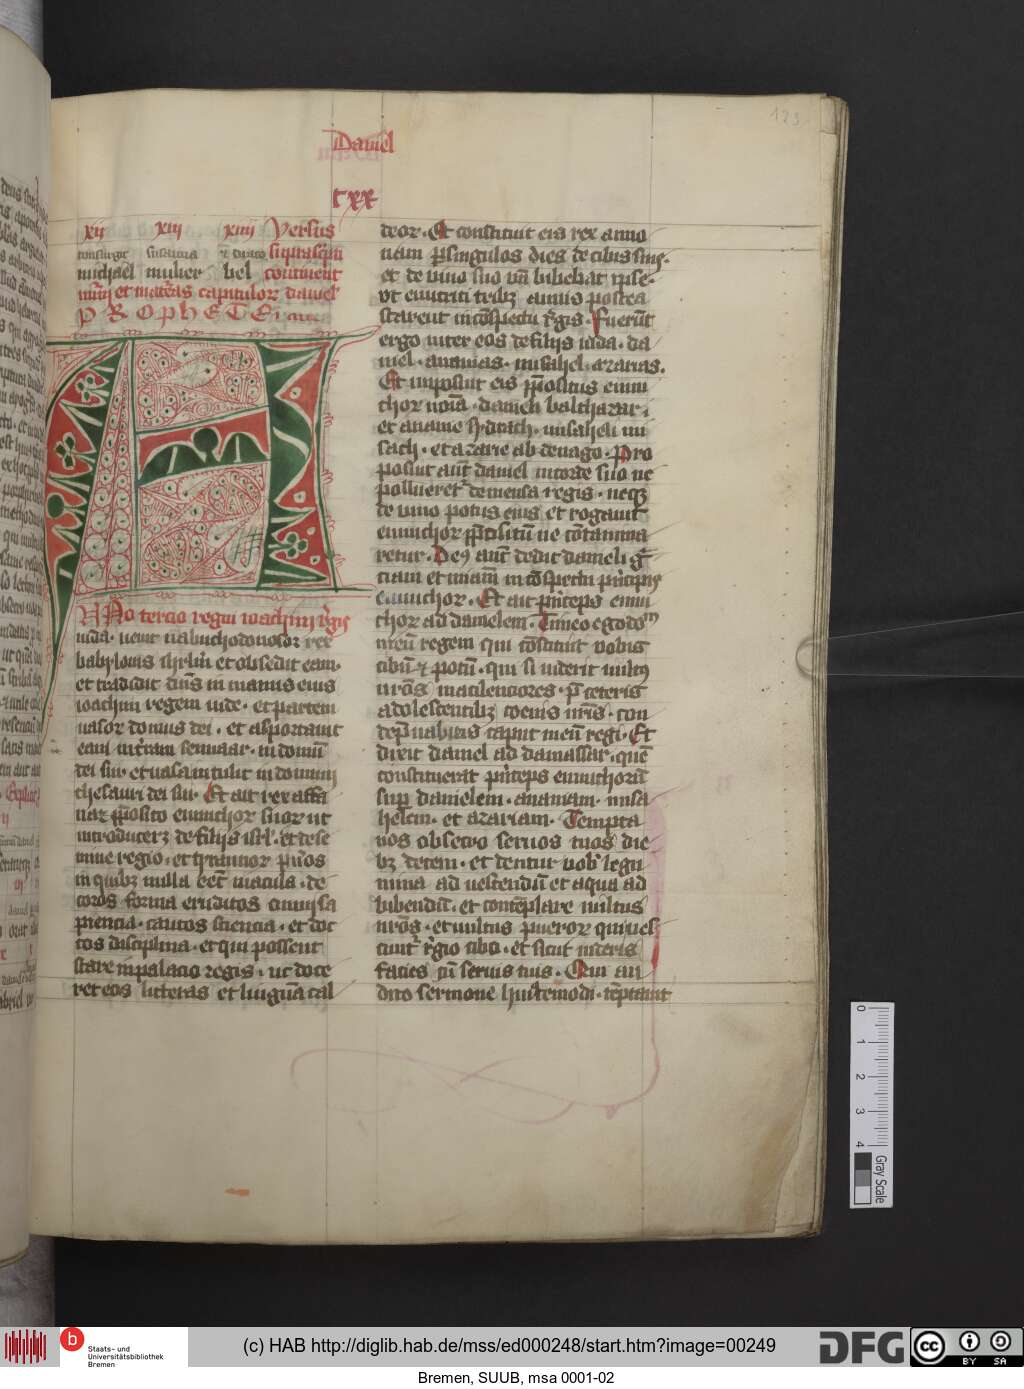 Daniel
cxx
123
xij xiij xiiij Versus
consurget susanna et draco suprascripti
michael mulier bel continent
nūm et materias capitulor daniel
PROPHETE
Nno tercio regni ioachim rēgis
iuda · uenit nabuchodonosor rex
babilonis iherlm et obsedit eam ·
et tradidit dn̄s in manus eius
ioachim regem iude · et partem
uasor domus dei · et asportauit
eam in t̄ram sennaar · in domū
dei sui · et uasa intulit in domum
thesauri dei sui · Et ait rex asfa
naz p̄posito eunuchor suor ut
introducerꝫ de filijs isrl · et de se
mine regio · et tyrannor pueros
in quibꝫ nulla eēt macula · de
coros forma eruditos omni sa
piencia · cautos sciencia · et doc
tos disciplina · et qui possent
stare in palacio regis · ut doce
ret eos litteras et linguā cal
deor · Et constituit eis rex anno
nam p singulos dies de cibis suis ·
et de uino suo vn̄ bibebat ipse ·
vt enutriti tribꝫ annis postea
starent in cōspectu r̄gis · Fuerūt
ergo inter eos de filijs iuda · da
niel · ananias · misahel · azarias.
Et imposuit eis p̄positus eunu
chor noīa · danieli balthazar ·
et ananie sydrach · misaheli mi
sach · et azarie abdenago · Pro
posuit aūt daniel in corde suo ne
pollueret de mensa regis · neqꝫ
de uino potus eius et rogauit
eunuchor p̄positū ne cōtamina
retur · Deꝰ aūt dedit danieli gr̄
ciam et mīam in cōspectu principis
eunuchor · Et ait princeps eunu
chor ad danielem · Timeo ego dom
meū regem qui cōstituit vobis
cibū et potū · qui si uiderit uultꝰ
ur̄os macilenciores · p̄ ceteris
adolescentibꝫ coeuis ur̄is · con
dēpnabitis caput meū regi · Et
dixit daniel ad damassar · quē
constituerat princeps eunuchorū
sup danielem · ananiam · misa
helem · et azariam · Tempta
nos obsecro seruos tuos die
bꝫ decem · et dentur nob legu
mina ad uescendū et aqua ad
bibendū · et contēplare uultus
nr̄os · et uultus pueror qui ues
cunt r̄gio cibo · et sicut uideris
facies cū seruis tuis · Qui au
dito sermone huiuscemodi · tēptauit
0 1 2 3 4
Gray Scale
b Staats- und
Universitätsbibliothek
Bremen
(c) HAB http://diglib.hab.de/mss/ed000248/start.htm?image=00249
DFG
cc BY SA
Bremen, SUUB, msa 0001-02